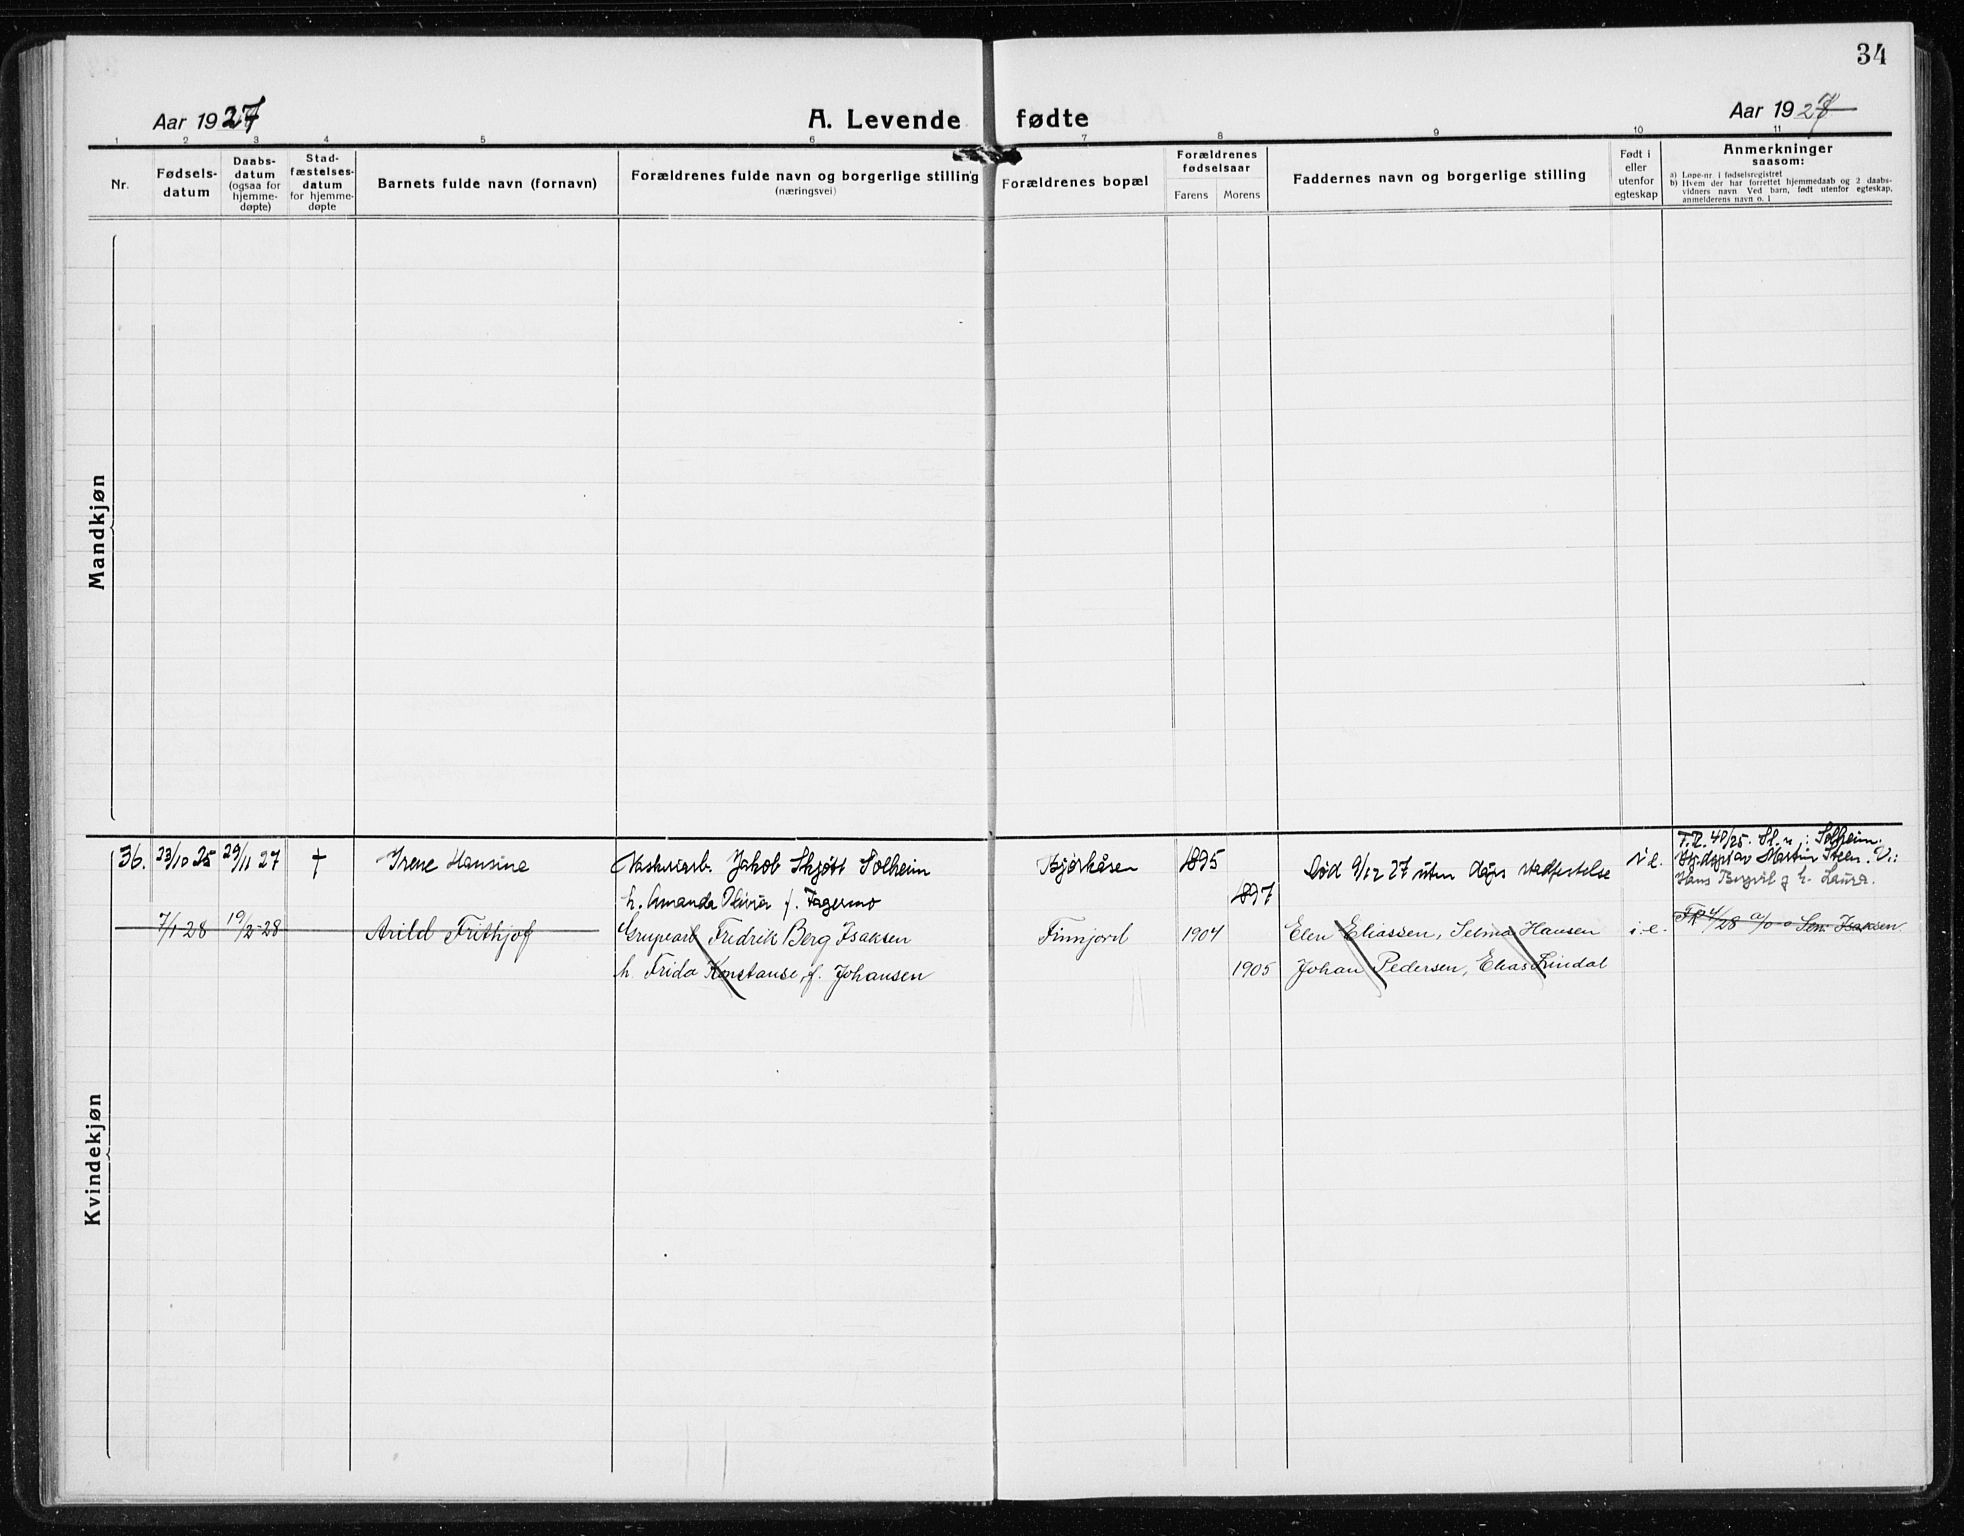 34
Aar 1927 A. Levende fødte Aar 1927
1 2 3 4 5 6 7 8 9 10 11
Nr.
Fødsels-
datum
Daabs-
datum
(ogsaa for
hjemme-
døpte)
Stad-
fæstelses-
datum
for hjemme-
døpte
Barnets fulde navn (fornavn)
Forældrenes fulde navn og borgerlige stilling
(næringsvei)
Forældrenes bopæl
Forældrenes
fødselsaar
Farens Morens
Faddernes navn og borgerlige stilling
Født i
eller
utenfor
egteskap
Anmerkninger
saasom:
a) Løpe-nr. i fødselsregistret
b) Hvem der har forrettet hjemmedaab og 2 daabs-
vidners navn Ved barn, født utenfor egteskap,
anmelderens navn o. l
Mandkjøn
Kvindekjøn
36. 23/10 25 29/11 27 † Irene Hansine
Jakob Skjøtt Solheim
h. Amanda Olivia f. Fagermo
Bjørkåsen 1895
1897
Død 9/12 27 uten dåps stadfestelse i e.
F.R. 48/25. Sl. n: Solheim.
Hj.døpt av Martin Steen. V.:
Hans Bergvil g h. Laura.
7/1-28 19/2-28 Arild Frithjof
Grubearb Fredrik Berg Isaksen
h. Frida Konstanse, f. Johansen
Finnjord 1904
1905
Elen Eliassen, Selma Hansen
Johan Pedersen, Elias Lindal
i-e.
FR 4/28 Isaksen